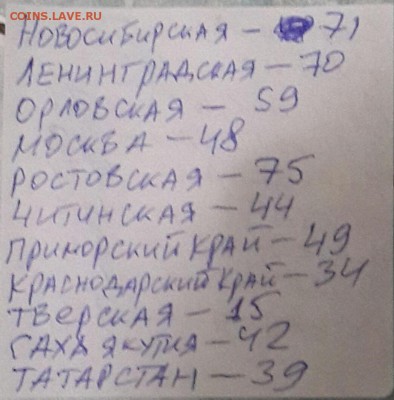 COINS.LAVE.RU
НОВОСИБИРСКАЯ - 71
ЛЕНИНГРАДСКАЯ - 70
ОРЛОВСКАЯ - 59
МОСКВА - 48
РОСТОВСКАЯ - 75
ЧИТИНСКАЯ - 44
ПРИМОРСКИЙ КРАЙ - 49
КРАСНОДАРСКИЙ КРАЙ - 34
ТВЕРСКАЯ - 15
САХА ЯКУТИЯ - 42
ТАТАРСТАН - 39